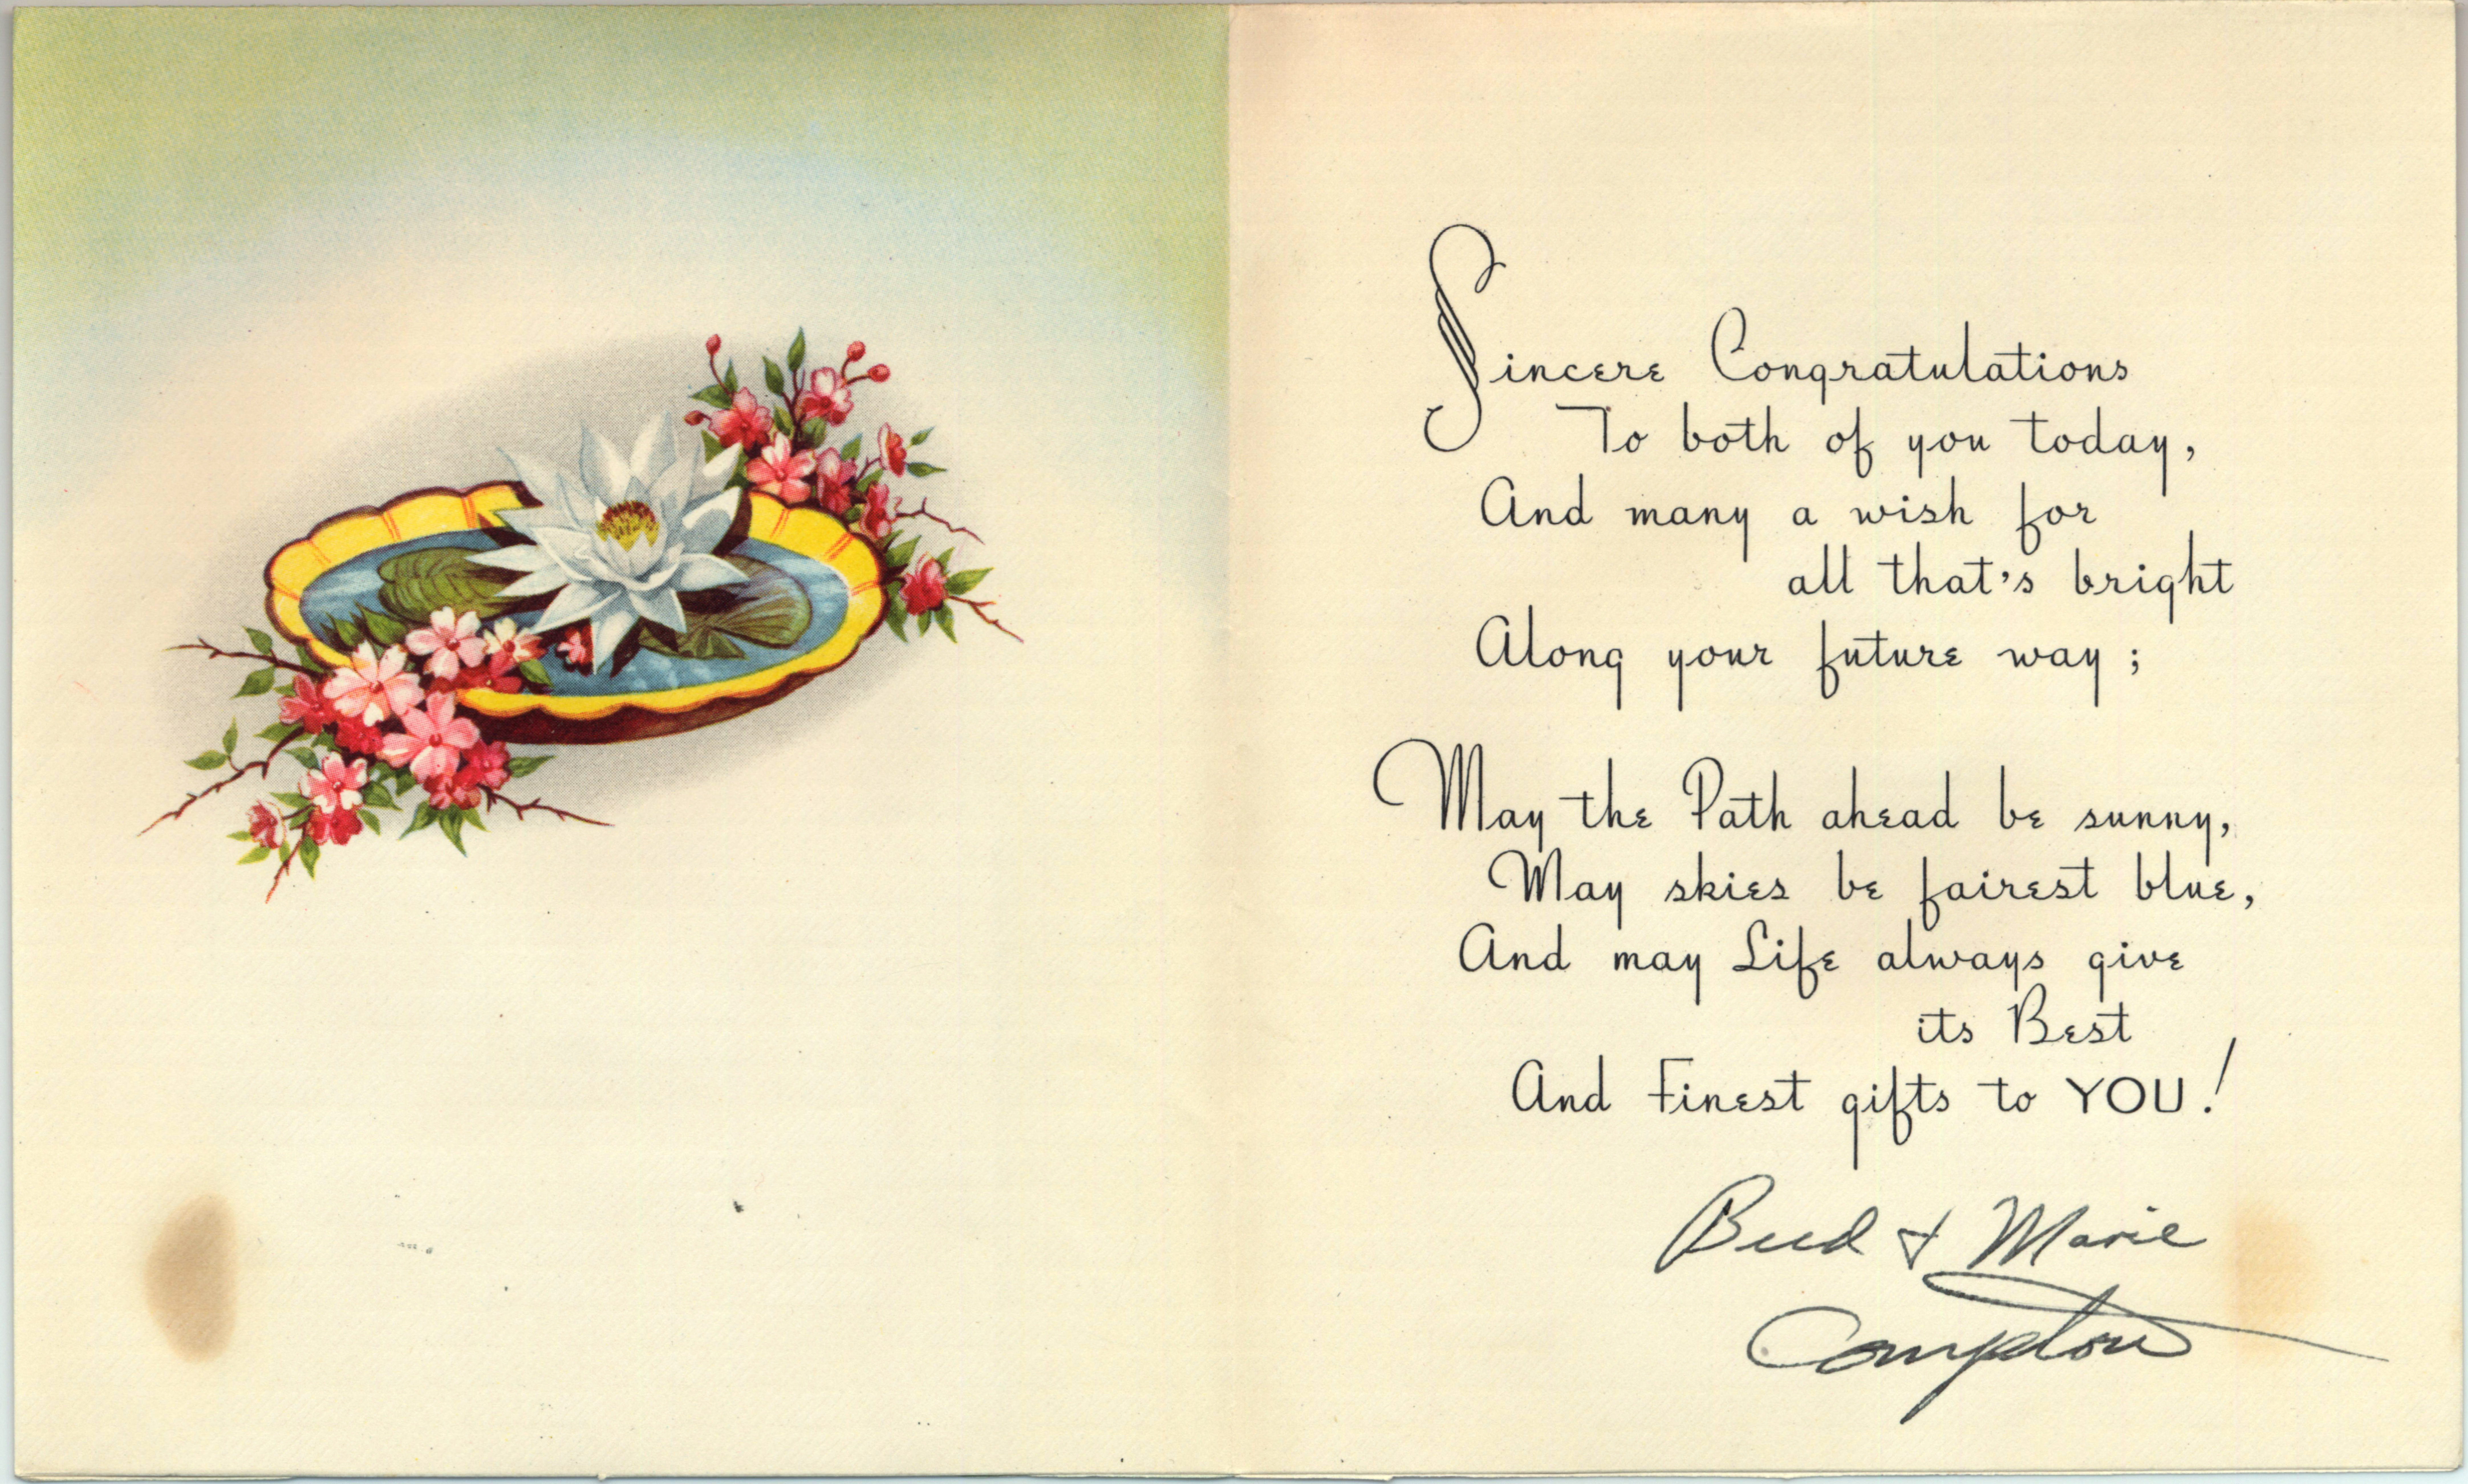 Sincere Congratulations
To both of you today,
And many a wish for
all that's bright
Along your future way;
May the Path ahead be sunny,
May skies be fairest blue,
And may Life always give
its Best
And Finest gifts to YOU!
Bud & Marie
Compton